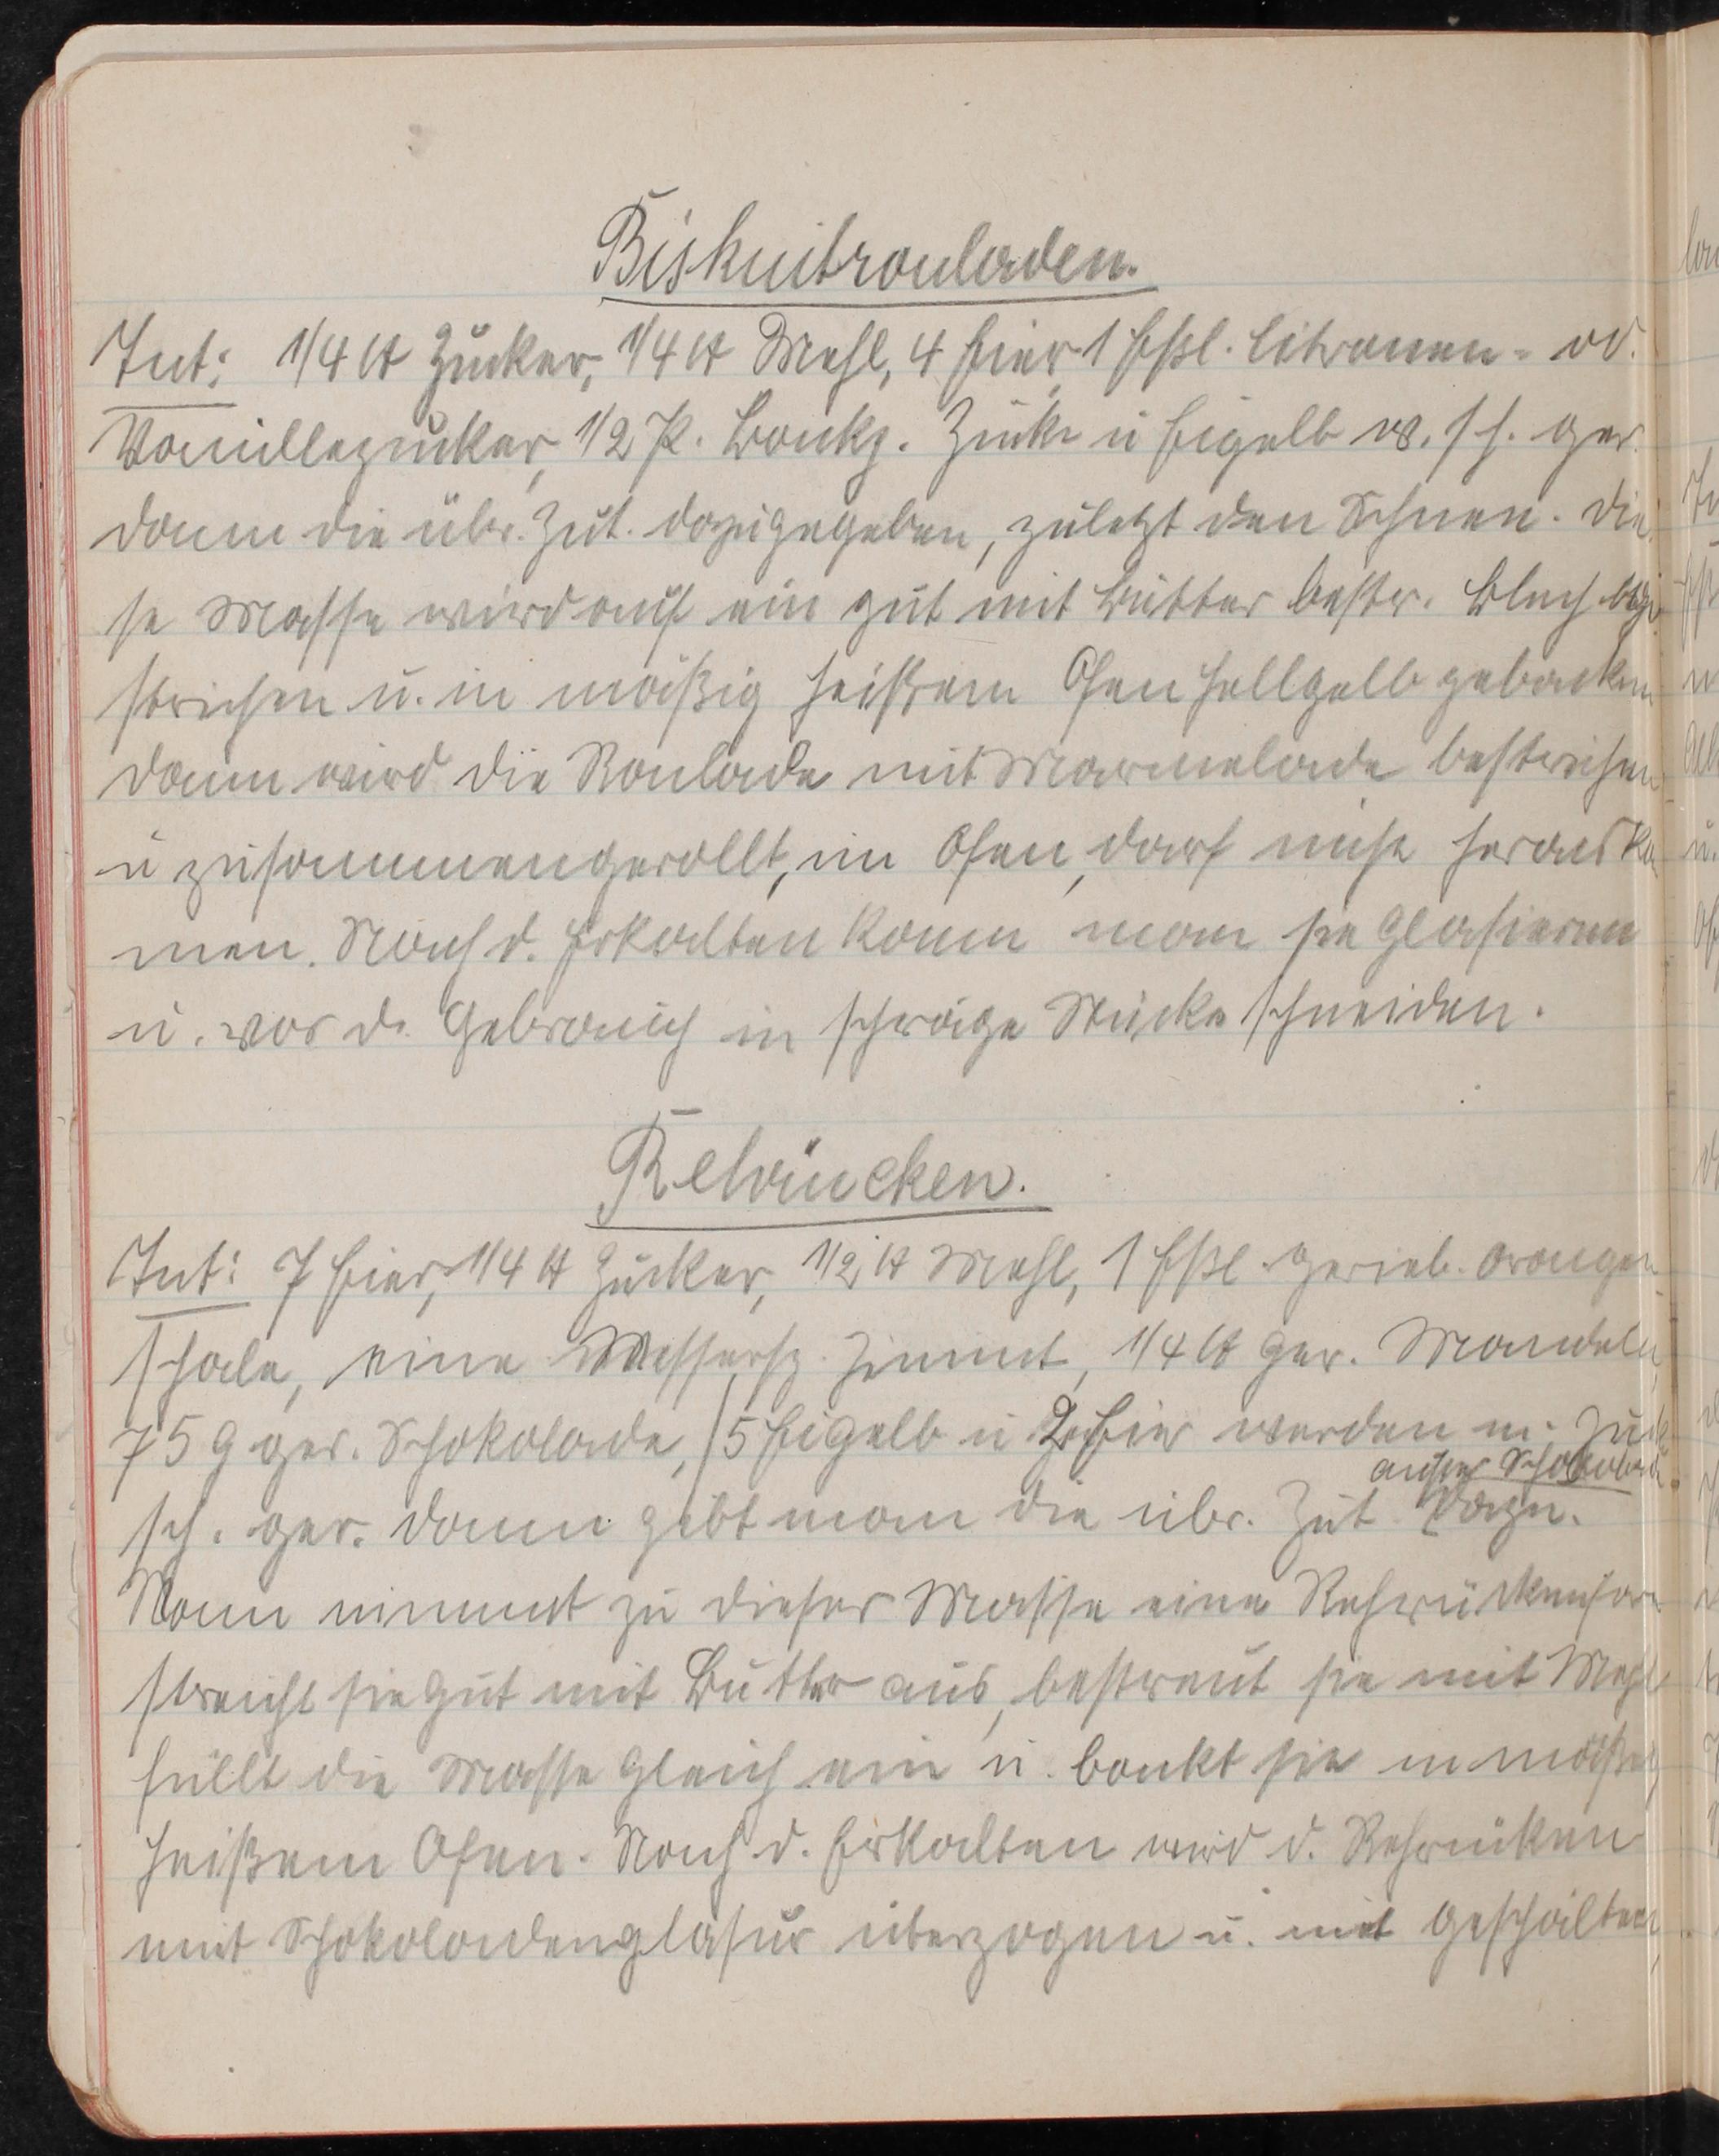 Biskuitrouladen.
Zut: 1/4 ℔ Zucker, 1/4 ℔ Mehl, 4 Eier, 1 Eßl. Citronen- od.
Vanillezucker, 1/2 P. Backp. Zuck u Eigelb w. sch. ger.
dann die übr. Zut. dazugegeben, zuletzt den Schnee. Die
se Masse wird auf ein gut mit Butter bestr. Blech
strichen u. in mäßig heißem Ofen hellgelb gebacken
dann wird die Roulade mit Marmelade bestrichen
u zusammengerollt, im Ofen, darf nicht heraus kom
men. Nach d. Erkalten kann man sie Glasieren
u. vor d. Gebrauch in schräge Stücke schneiden.
Rehrücken.
Zut: 7 Eier, 1/4 ℔ Zucker, 1/2 ℔ Mehl, 1 Eßl. gerieb. Orangen
schale, eine Messersp. Zimmt, 1/4 ℔ ger. Mandeln,
75 g ger. Schokolade, / 5 Eigelb u 2 Eier werden m. Zuck
außer Schokolade
sch. ger. dann gibt man die übr. Zut. dazu.
Mann nimmt zu dieser Masse eine Rehrückenform
streicht sie gut mit Butter aus, bestreut sie mit Mehl
füllt die Masse gleich ein u. backt sie in mäßig
heißem Ofen. Nach d. Erkalten wird d. Rehrücken
mit Schokoladenglasur überzogen u. mit geschälten